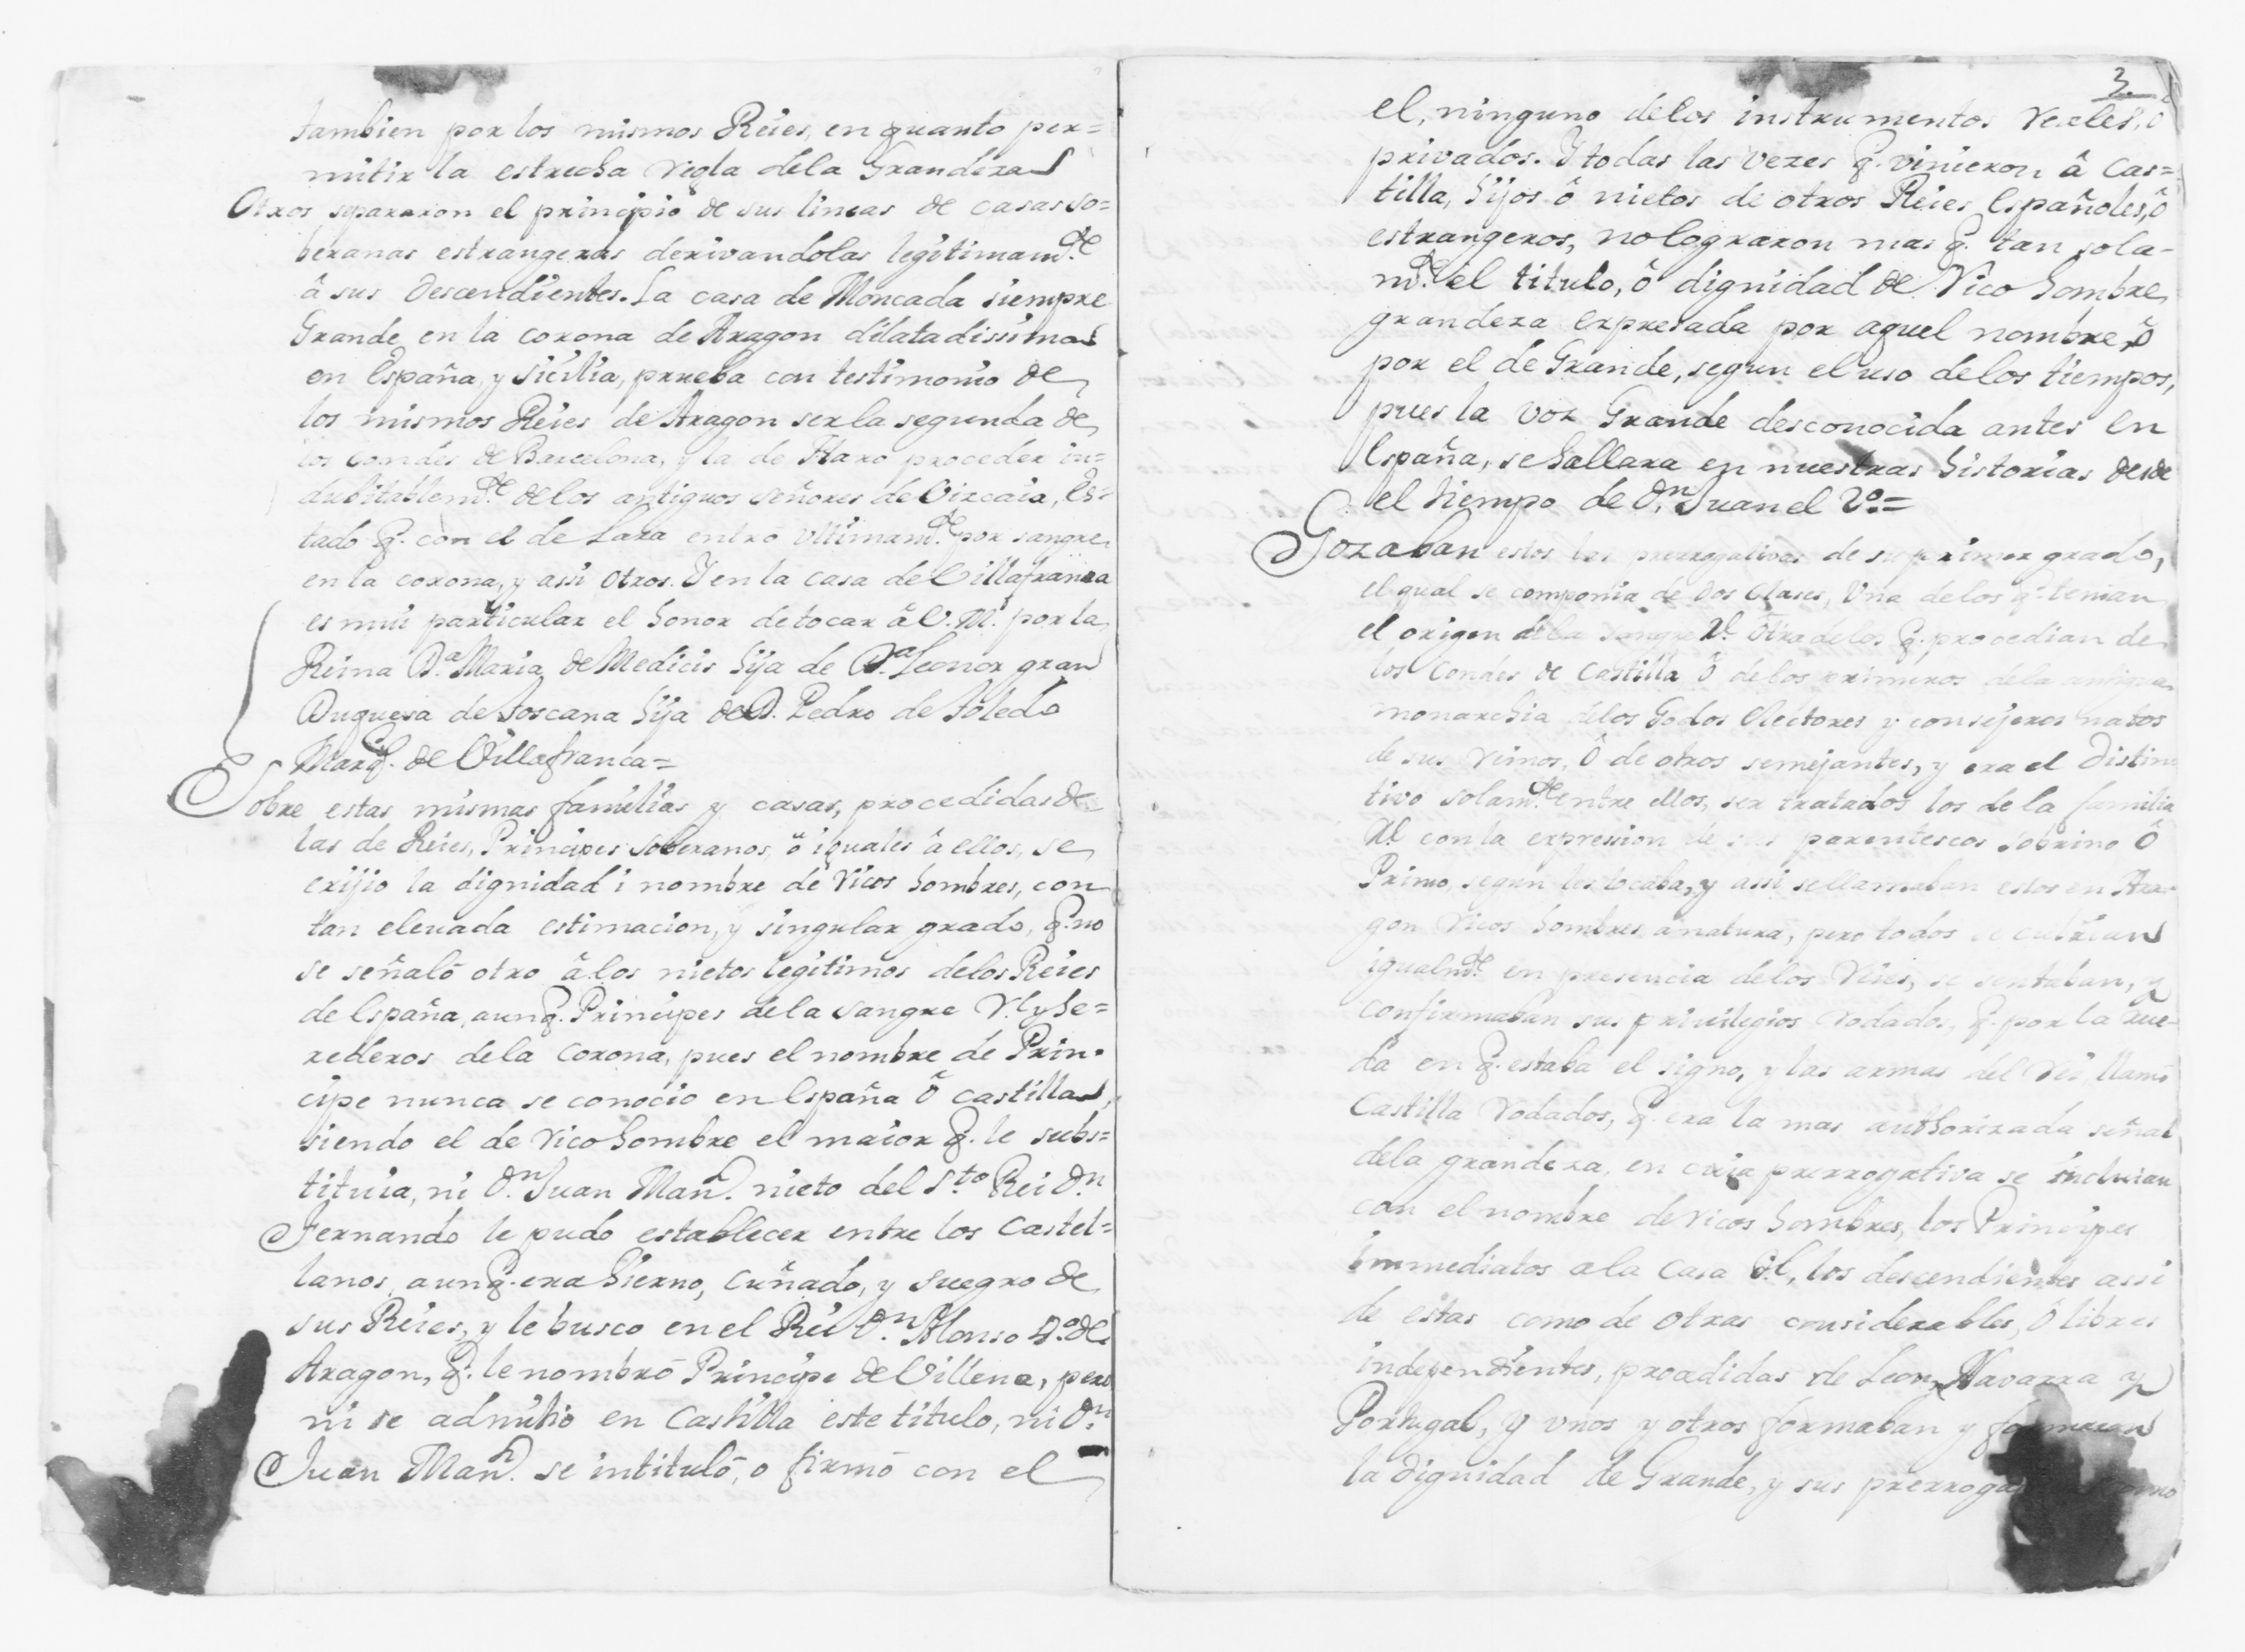 tambien por los mismos Reies, en quanto per=
mitir la estrecha regla dela Grandeza
Otros separaron el principio de sus lineas de casas so=
beranas estrangeras derivandolas legitimamte
â sus descendientes. La casa de Moncada siempre
Grande en la corona de Aragon dilatadissima
en España, y Sicilia, prueba con testimonio de
los mismos Reies de Aragon ser la segunda de
los condes de Barcelona, y la de Haro proceder in=
dubitablemte delos antiguos señores de Vizcaia, Es=
tado q. con el de Lara entró ultimamte por sangre
en la corona, y assi otros. Y en la casa de Villafranca
es mui particular el honor de tocar â V. M. por la
Reina Da. Maria de Medicis hija de Da. Leonor gran
Duquesa de Toscana hija de D. Pedro de Toledo
Marqs. de Villafranca=
Sobre estas mismas familias y casas, procedidas de
las de Reies, Principes soberanos, ô iguales â ellos, se
erijio la dignidad i nombre de ricos hombres, con
tan eleuada estimacion, y singular grado, q. no
se señaló otro â los nietos legitimos delos Reies
de España, aunq. Principes dela sangre Rl. y he=
rederos dela corona, pues el nombre de Prin=
cipe nunca se conocio en España ô castilla,
siendo el de rico hombre el maior q. le subs=
tituia, ni Dn. Juan Manl. nieto del Sto. Rei Dn.
Fernando le pudo establecer entre los Castel=
lanos, aunq. era hierno, cuñado, y suegro de
sus Reies, y le busco en el Rei Dn. Alonso 4o. de
Aragon, q. le nombró Principe de Villena, pero
ni se admitio en Castilla este titulo, ni Dn.
Juan Manl. se intituló, o firmó con el
3.
el, ninguno delos instrumentos reales, ô
privados. Y todas las vezes q. vinieron â Cas=
tilla, hijos ô nietos de otros Reies Españoles, ô
estrangeros, no lograron mas q. tan sola-
mte. el titulo, ô dignidad de Rico hombre,
grandeza expresada por aquel nombre, ô
por el de Grande, segun el uso delos tiempos,
pues la voz Grande desconocida antes en
España, se hallara en nuestras historias desde
el tiempo de Dn. Juan el 2o.=
Gozaban estos las prerrogativas de su primer grado,
el qual se componia de dos Clases, Una delos q. tenian
el origen dela sangre Rl. Otra delos q. procedian de
los Condes de Castilla ô delos primeros dela antigua
monarchia delos Godos Electores y consejeros natos
de sus reinos, ô de otros semejantes, y era el distin=
tivo solamte entre ellos, ser tratados los de la familia
Rl. con la expression de sus parentescos sobrino ô
Primo, segun les tocaba, y assi se llamaban estos en Ara=
gon ricos hombres a natura, pero todos se cubrian
igualmte. en presencia delos Reies, se sentaban, y
confirmaban sus privilegios rodados, q. por la rue-
da en q. estaba el signo, y las armas del Rei, llamó
Castilla rodados, q. era la mas authorizada señal
dela grandeza, en cuia prerrogativa se incluian
con el nombre de ricos hombres, los Principes
immediatos a la Casa Rl., los descendientes assi
de estas como de otras considerables, ô libres
independientes, procedidas de Leon, Navarra y
Portugal, y unos y otros formaban y formaron
la dignidad de Grande, y sus